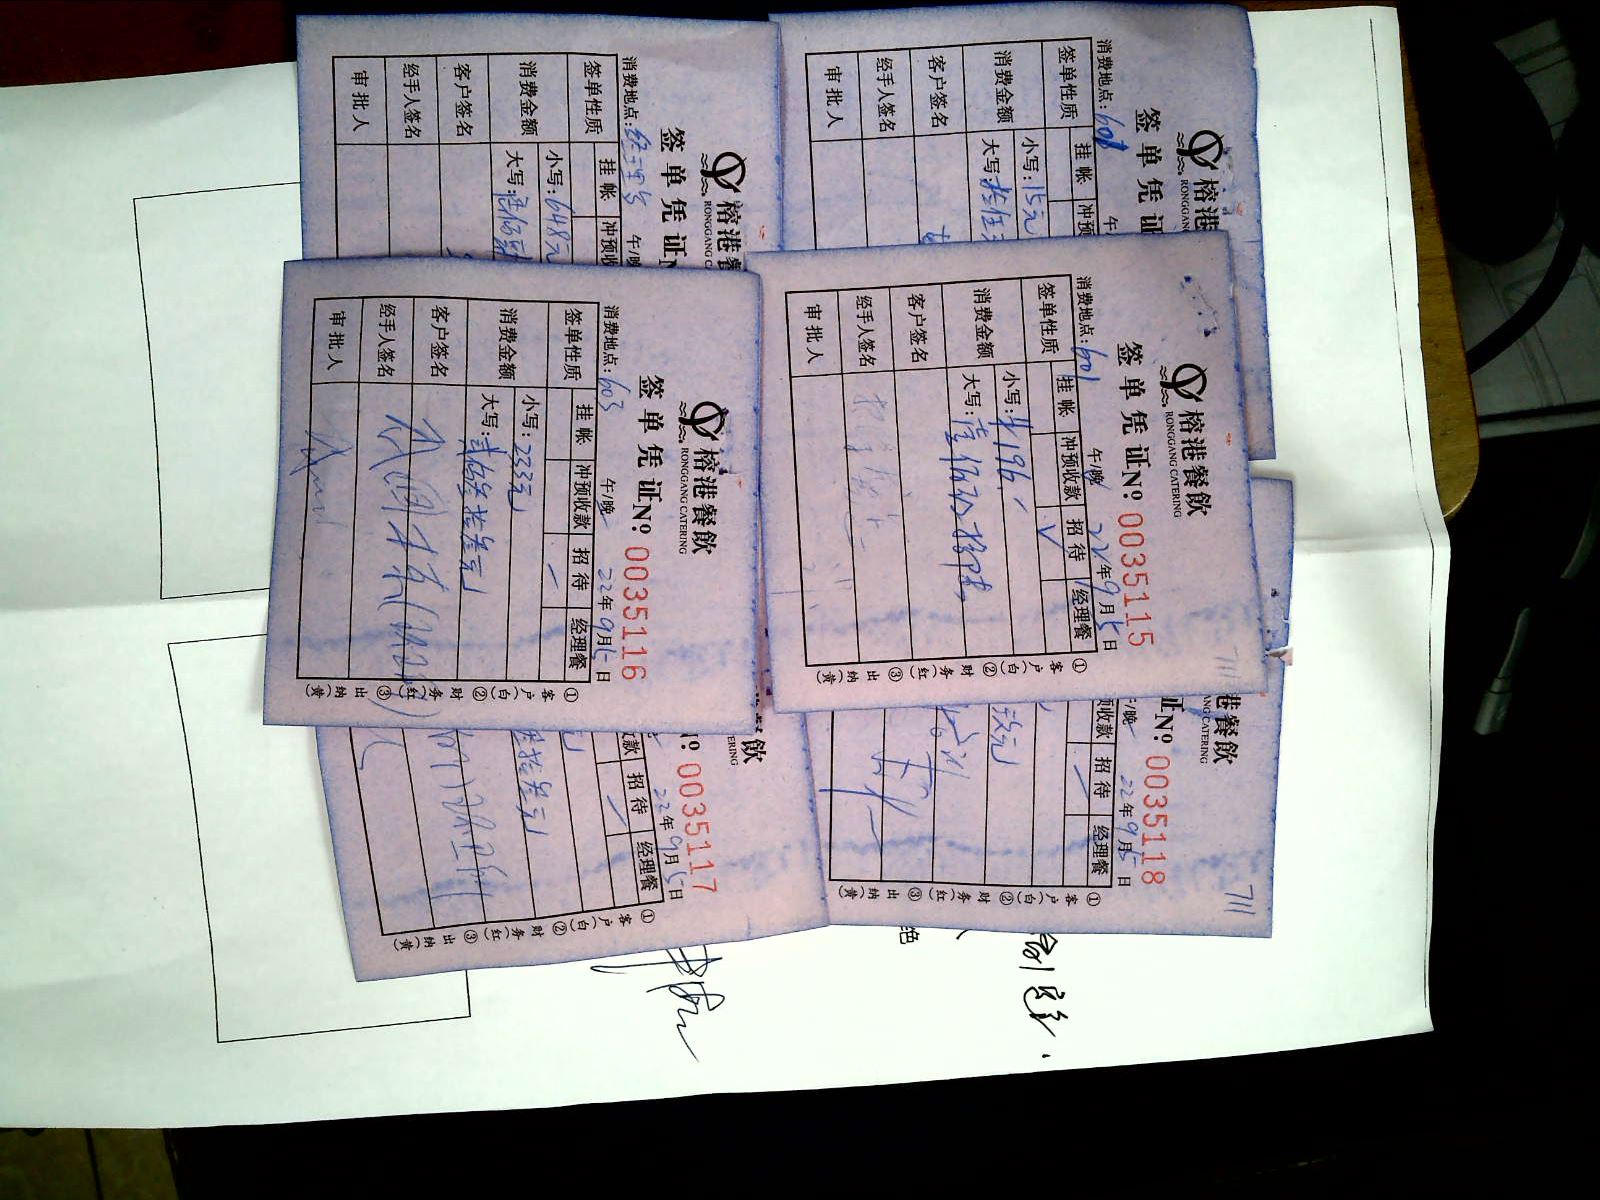 榕港餐飲
RONGGANG CATERING
签单凭证Nº 0035116
消费地点:603 午/晚 22年9月5日
签单性质 挂帐 冲预收款 招待 经理餐
消费金额 小写:233元
大写:贰佰叁拾叁元
客户签名
经手人签名
审批人
①客户(白)②财务(红)③出纳(黄)
榕港餐飲
RONGGANG CATERING
签单凭证Nº 0035115
消费地点:601 午/晚 22年9月5日
签单性质 挂帐 冲预收款 招待 √ 经理餐
消费金额 小写:¥196.-
大写:壹佰玖拾陆
客户签名
经手人签名
审批人
①客户(白)②财务(红)③出纳(黄)
711
榕港餐
RONGGANG C
签单凭证N
消费地点:经理房 午/晚
签单性质 挂帐 冲预收
消费金额 小写:648元
大写:陆佰肆
客户签名
经手人签名
审批人
榕港
RONGGAN
签单凭证
消费地点:608 午
签单性质 挂帐 冲预
消费金额 小写:15元
大写:拾伍元
客户签名
经手人签名
审批人
飲
ERING
º 0035117
22年9月5日
款 招待 经理餐
拾叁元
①客户(白)②财务(红)③出纳(黄)
港餐飲
ANG CATERING
证Nº 0035118
午/晚 22年9月5日
预收款 招待 经理餐
玖元
①客户(白)②财务(红)③出纳(黄)
711
绝